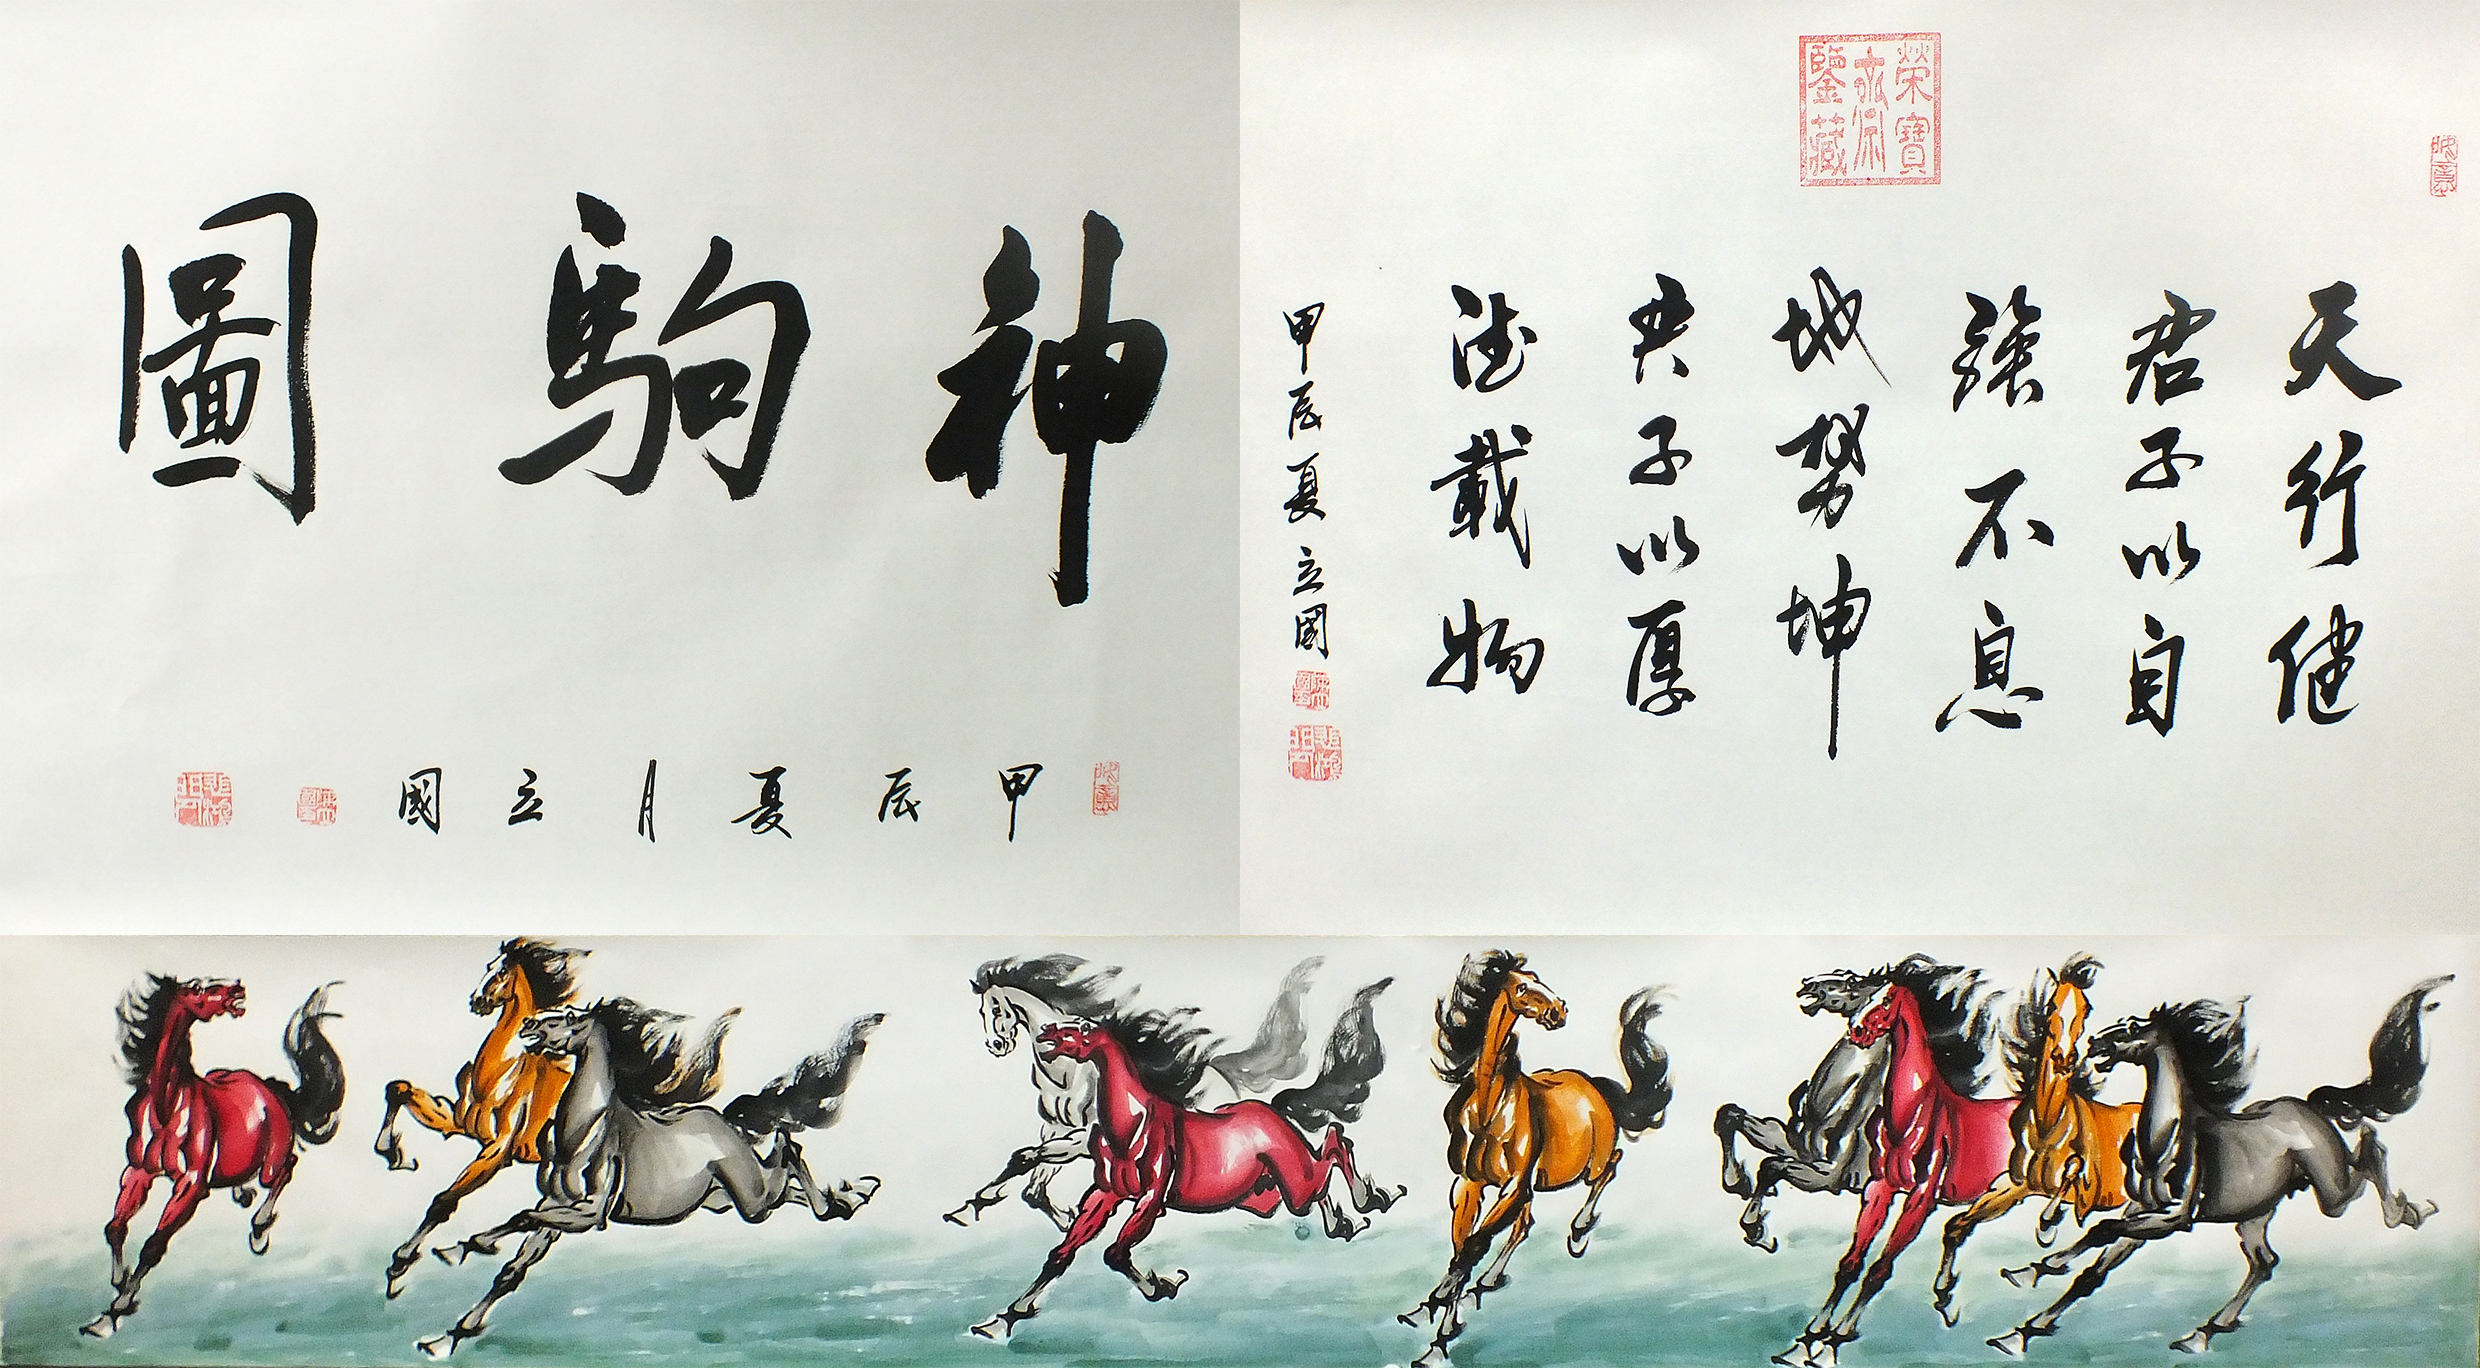 神駒圖
甲辰夏月立國
榮寶齋鑒藏
天行健
君子以自
強不息
地勢坤
君子以厚
德載物
甲辰夏立國